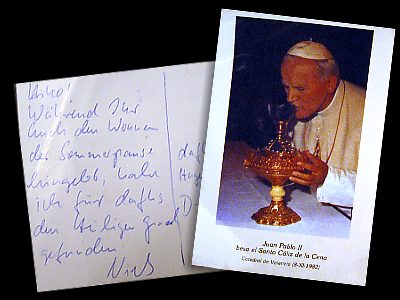 Ahoi!
Während Ihr
Euch den Wonnen
der Sommerpause
hingebt, habe
ich für
den Heiligen Graal
gefunden
D
Juan Pablo II
besa el Santo Cáliz de la Cena
Catedral de Valencia (8-XI-1982)